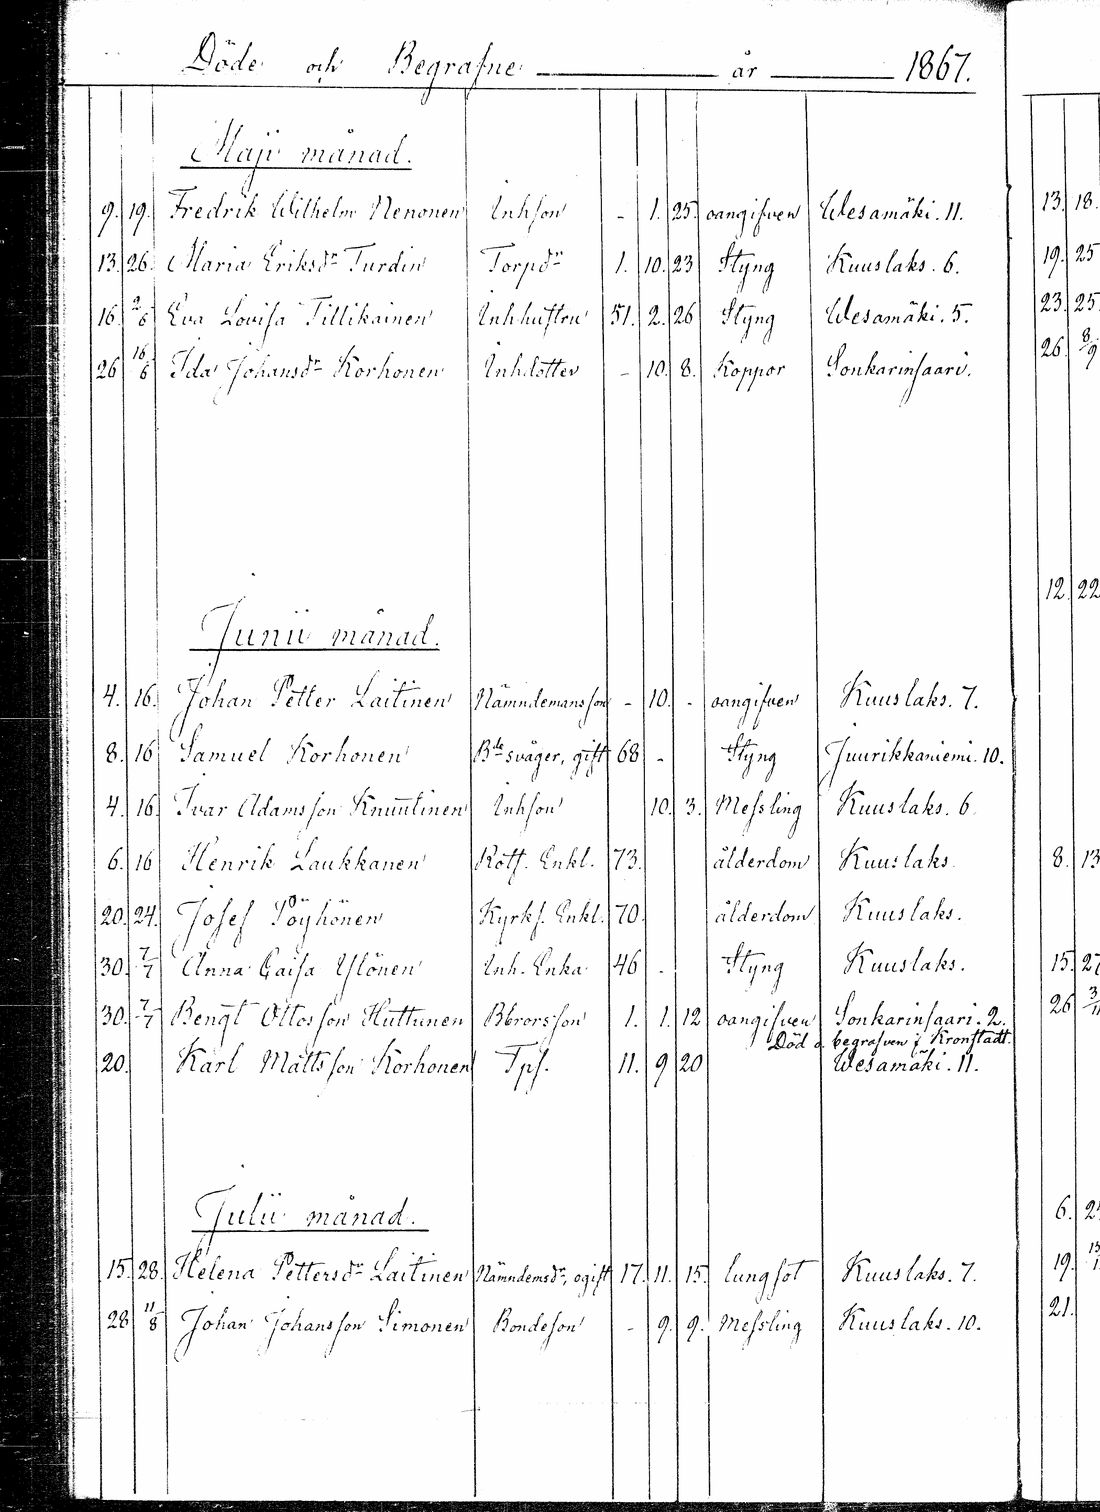 Döde och Begrafne år 1867.
Maji månad.
9. 19. Fredrik Wilhelm Nenonen Inhson - 1. 25. oangifven Wesamäki. 11.
13. 26. Maria Eriksdr Turdin Torpdr 1. 10. 23 Styng Kuuslaks. 6.
16. 2/6 Eva Lovisa Tillikainen Inhhustru 51. 2. 26 Styng Wesamäki. 5.
26 16/6 Ida Johansdr Korhonen Inhdotter - 10. 8. Koppor Sonkarinsaari.
Junii månad.
4. 16. Johan Petter Laitinen Nämndemansson - 10. - oangifven Kuuslaks. 7.
8. 16 Samuel Korhonen Bde svåger, gift 68 - Styng Juurikkaniemi. 10.
4. 16. Ivar Adamsson Knuutinen Inhson 10. 3. Messling Kuuslaks. 6
6. 16 Henrik Laukkanen Rott. Enkl. 73. ålderdom Kuuslaks.
20. 24. Josef Pöyhönen Kyrkf. Enkl. 70. ålderdom Kuuslaks.
30. 7/7 Anna Caisa Ylönen Inh. Enka 46 - Styng Kuuslaks.
30. 7/7 Bengt Ottosson Huttunen Bbrorsson 1. 1. 12 oangifven Sonkarinsaari. 2.
Död o begrafven i Kronstadt.
20. Karl Mattsson Korhonen Tps. 11. 9 20 Wesamäki. 11.
Julii månad.
15. 28. Helena Pettersdr Laitinen Nämndemsdr, ogift 17. 11. 15. lungsot Kuuslaks. 7.
28 11/8 Johan Johansson Simonen Bondeson - 9. 9. Messling Kuuslaks. 10.
13. 18.
19. 25
23. 25.
26. 8/9
12. 22
8. 13
15. 27
26
6.
19.
21.